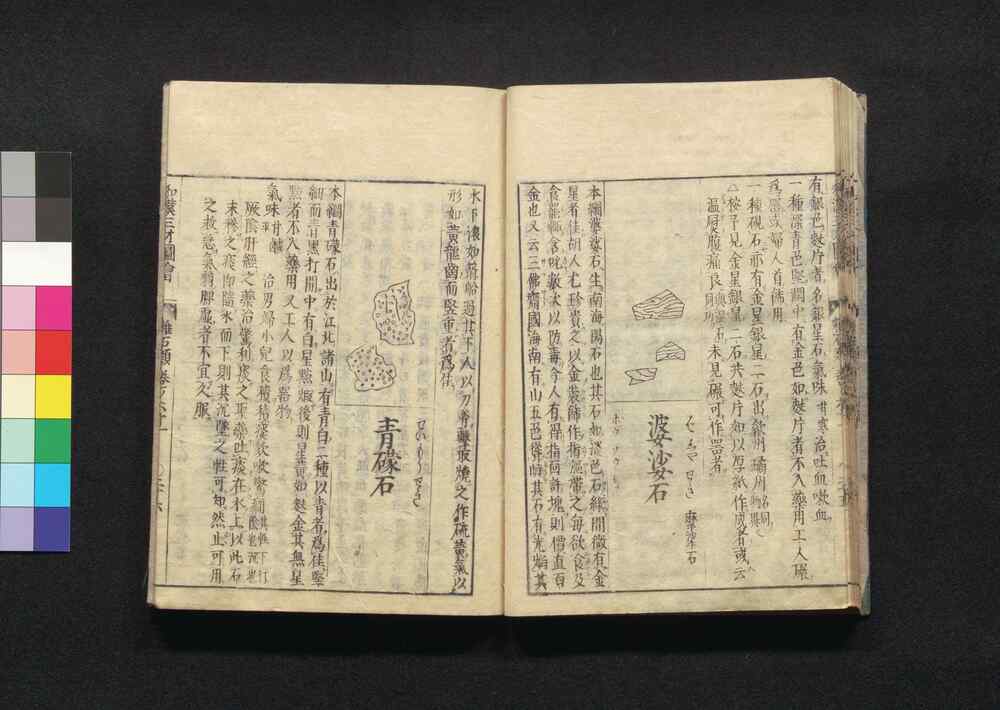 有銀色麩片者名銀星石氣味甘寒治吐血嗽血
一種深青色堅潤中有金色如麩片者不入藥用工人碾
爲器或婦人首飾用
一種硯石亦有金星銀星二石出
△按予見金星銀星二石共麩片如以厚紙作成者或云
温臍腹痛良
未見碾可作器者
婆娑石
摩挲石
本綱婆娑石生南海陽石也其石如淡色石綠間微有金
星者佳胡人尤珍貴之以金裝飾作指彄帶之每欲食及
食罷輒含吮數次以防毒今人有得指面許塊則價直百
金也又云三佛齊國海南有山五色聳峙其石有光焰其
水下滾如箭船過其下人以刀斧擊取燒之作硫黃氣以
形如黃龍齒而堅重者爲佳
青礞石
本綱青礞石出於江北諸山有青白二種以青者爲佳堅
細而青黑打開中有白星點煅後則星黃如麩金其無星
點者不入藥用又工人以爲器物
氣味甘鹹平 治男婦小兒食積積痰欬嗽喘急
厥陰肝經之藥治驚利痰之聖藥吐痰在水上以此石
末糝之痰卽隨水而下則其沉墜之性可知然止可用
之救急氣弱脾虛者不宜久服
和漢三才圖會
雜石類